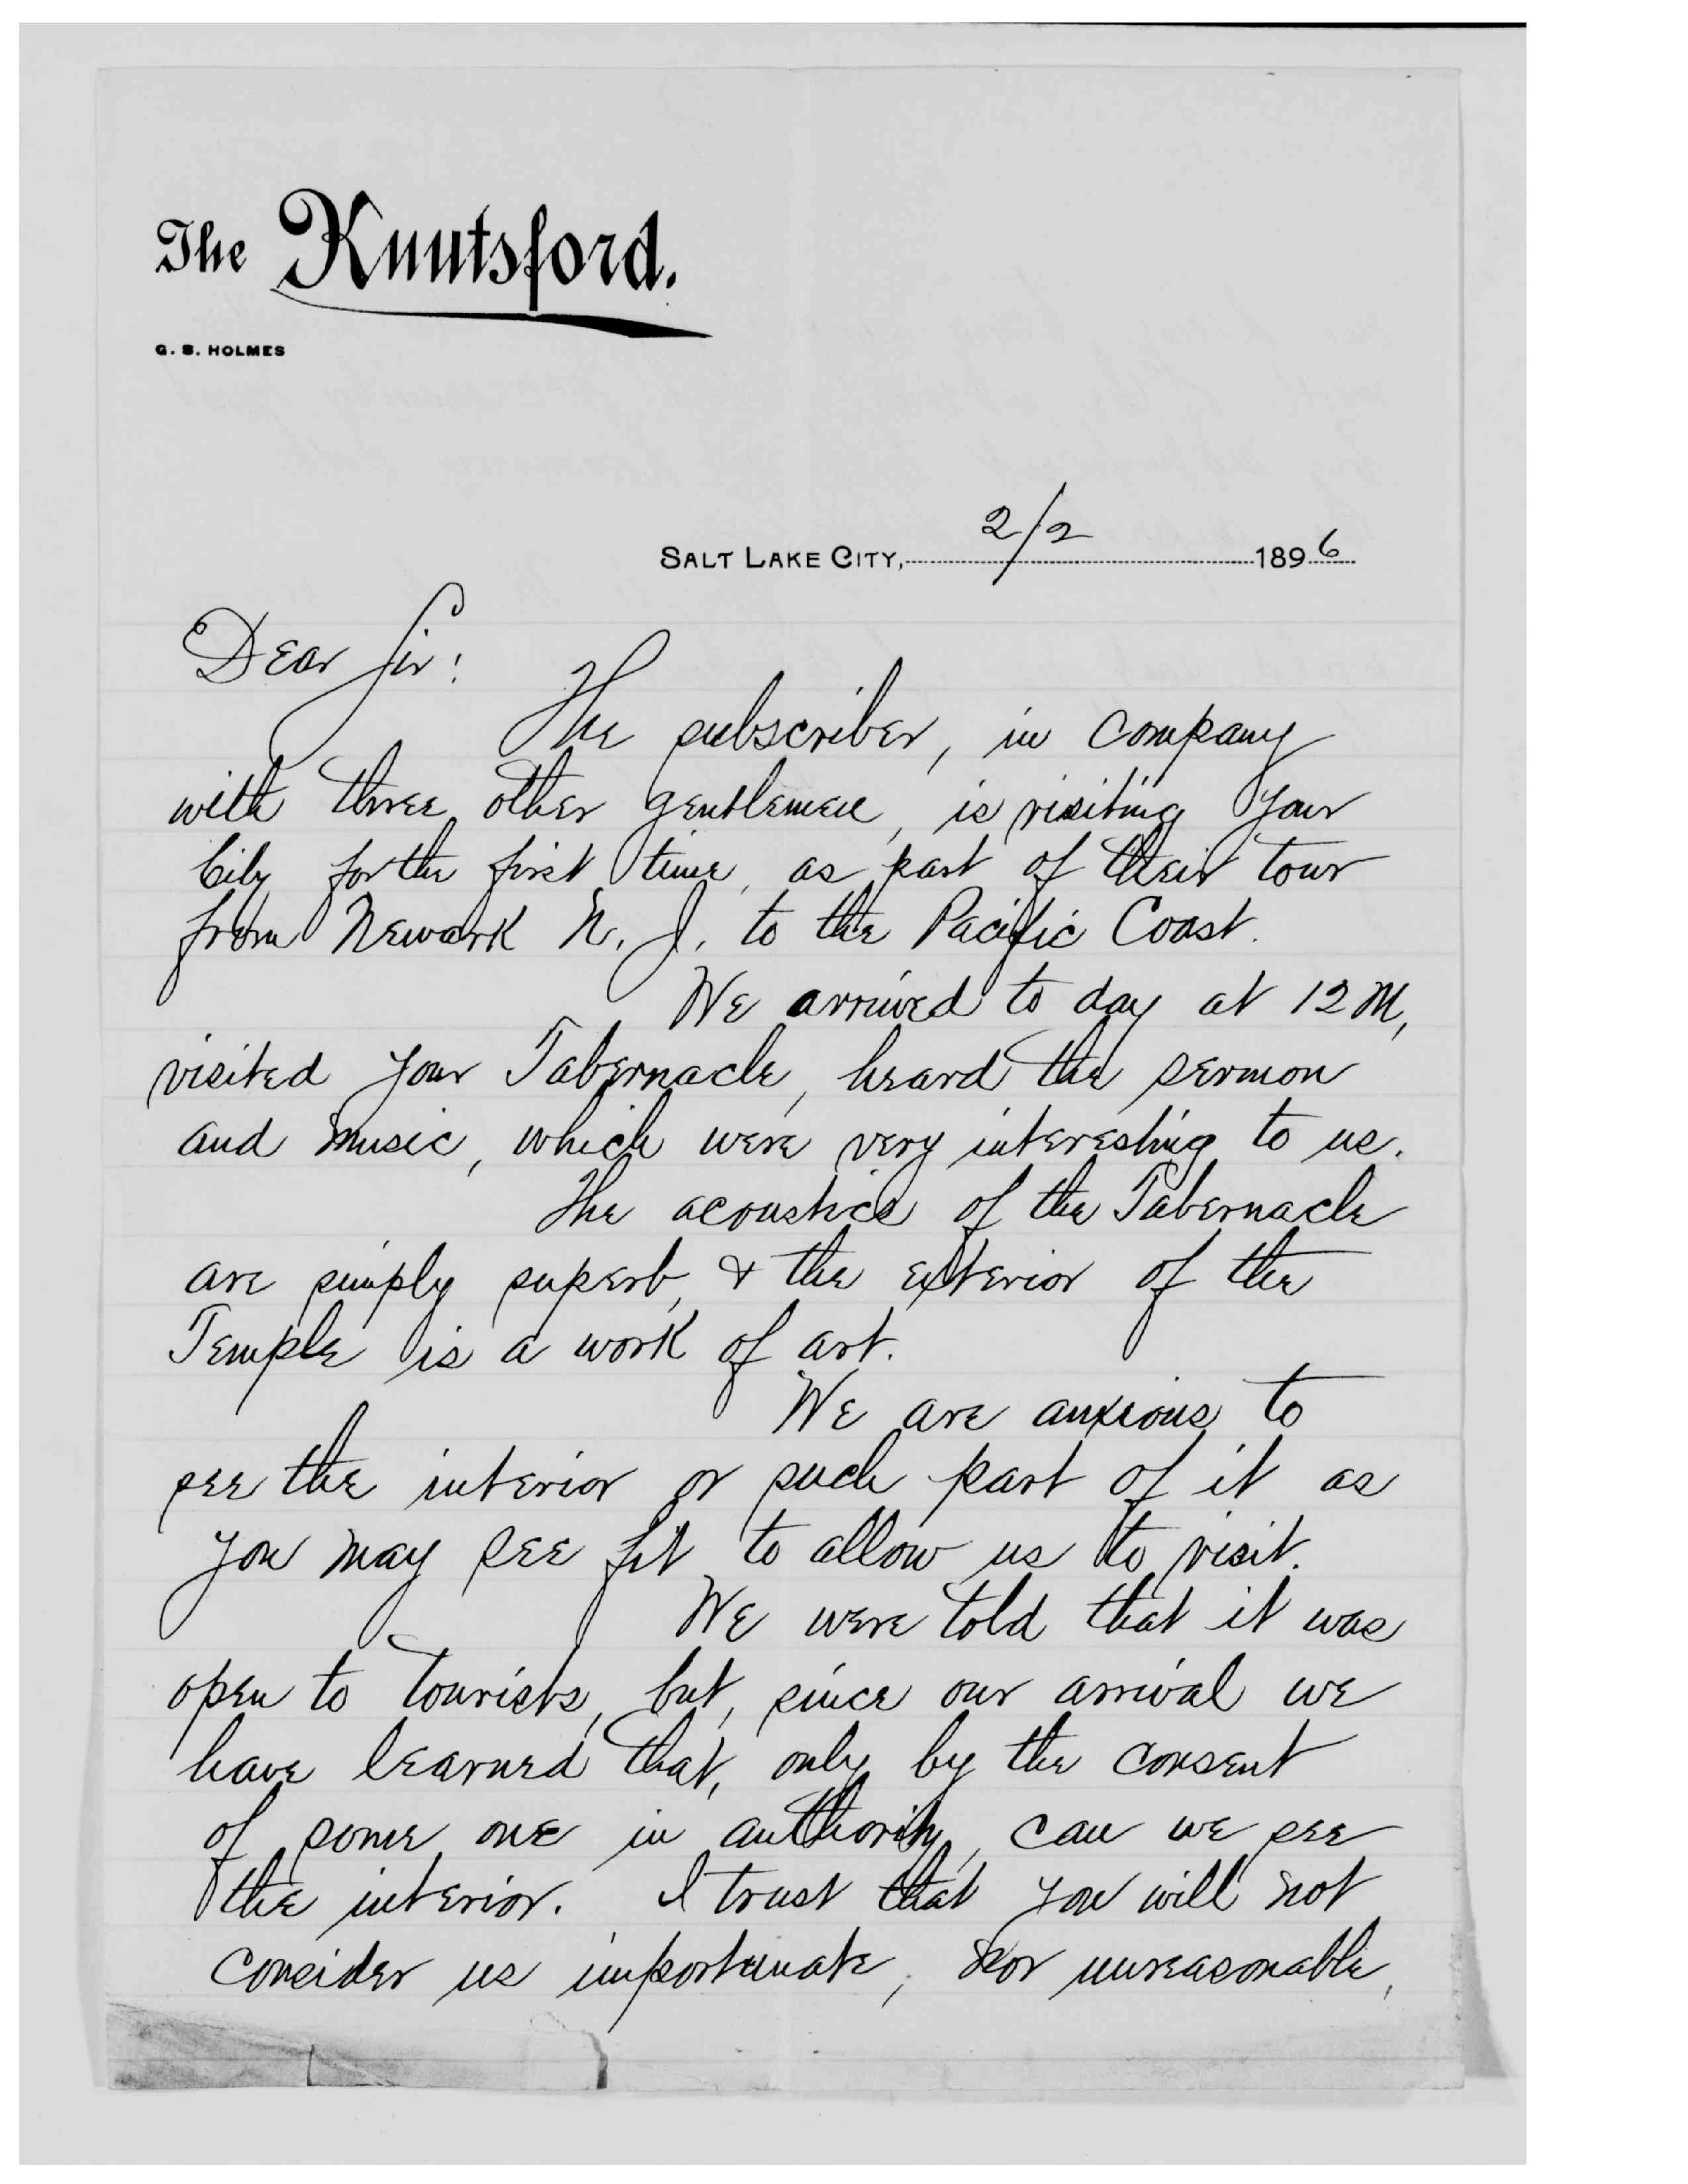 The Knutsford.
G. S. HOLMES
SALT LAKE CITY, 2/2 1896
Dear Sir:
The subscriber, in company
with three other gentlemen, is visiting your
City for the first time, as part of their tour
from Newark N. J. to the Pacific Coast.
We arrived to day at 12 M,
visited your Tabernacle, heard the sermon
and music, which were very interesting to us.
The acoustics of the Tabernacle
are simply superb, & the exterior of the
Temple is a work of art.
We are anxious to
see the interior or such part of it as
you may see fit to allow us to visit.
We were told that it was
open to tourists, but, since our arrival we
have learned that, only by the consent
of some one in authority, can we see
the interior. I trust that you will not
consider us importunate, nor unreasonable,